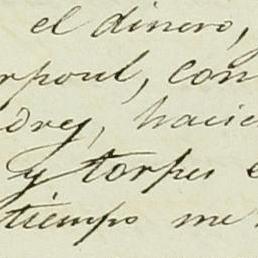 el dinero,
rpoul, con
drey, hacie
y torpes e
tiempo me